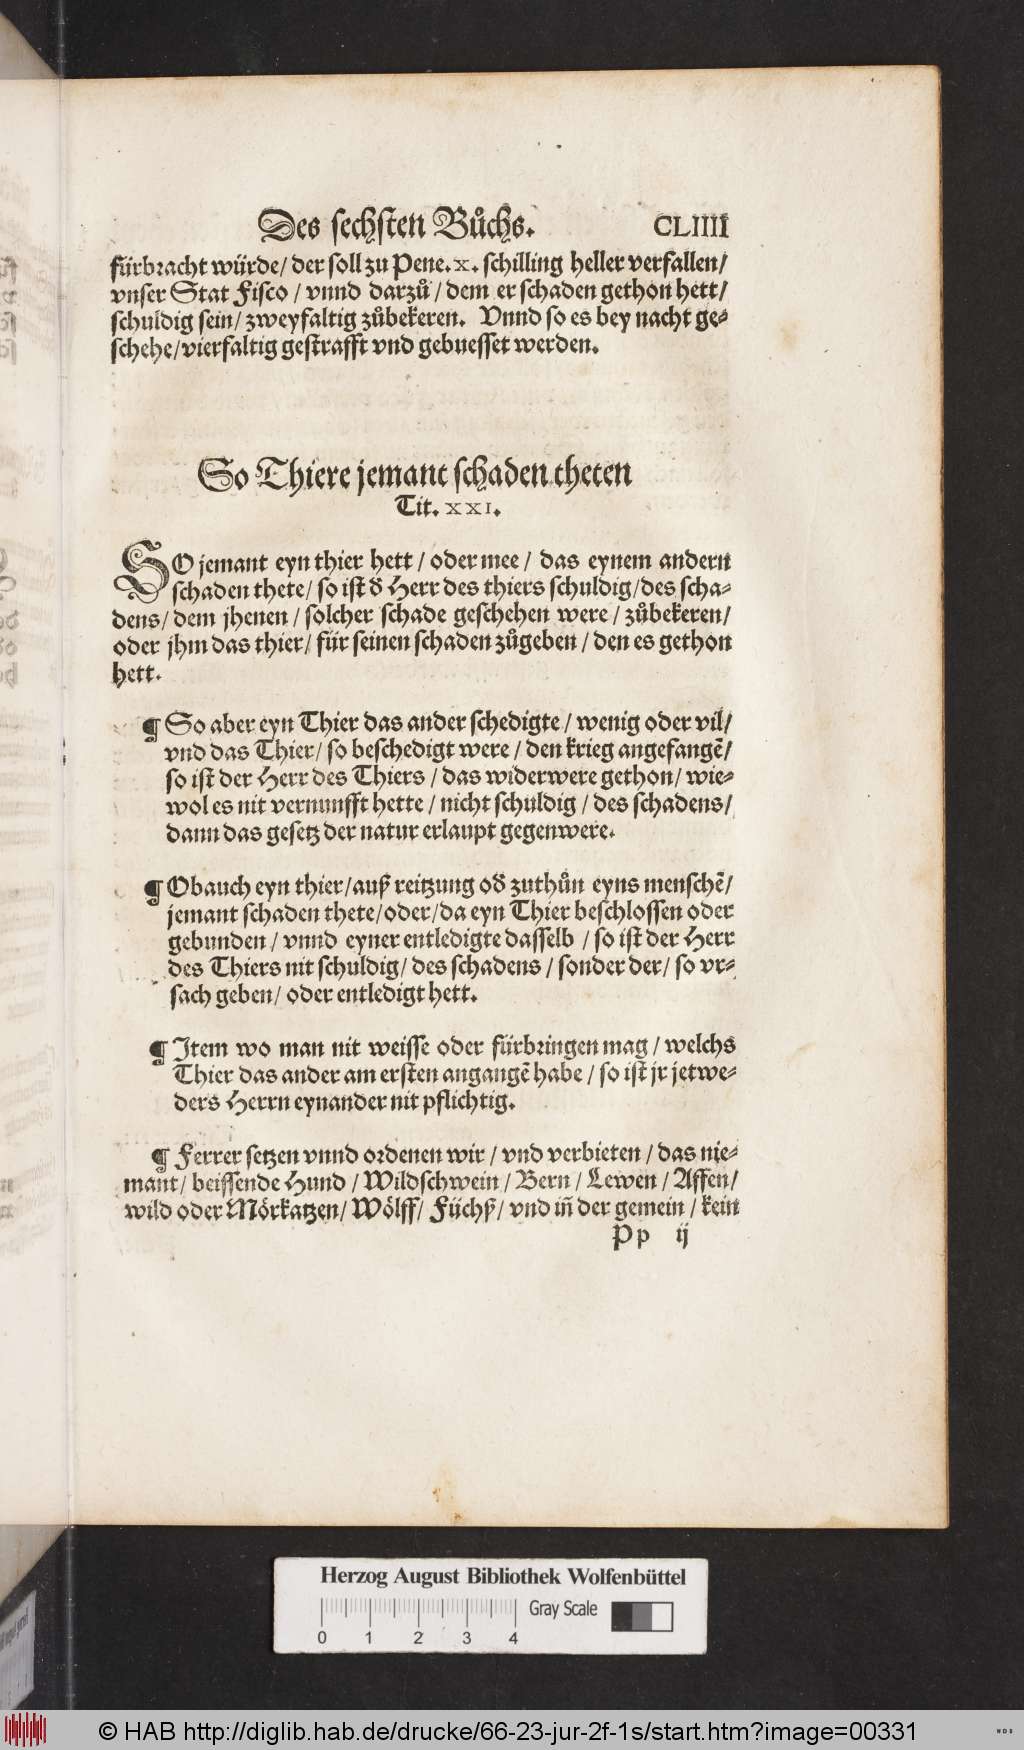 Des sechsten Bůchs. CLIIII
fürbracht würde/ der soll zu Pene. x. schilling heller verfallen/
vnser Stat Fisco / vnnd darzů / dem er schaden gethon hett/
schuldig sein/ zweyfaltig zůbekeren. Vnnd so es bey nacht ge-
schehe/vierfaltig gestrafft vnd gebuesset werden.
So Thiere jemant schaden theten
Tit. XXI.
SO jemant eyn thier hett / oder mee / das eynem andern
schaden thete/ so ist d̕ Herr des thiers schuldig/des scha-
dens/ dem jhenen / solcher schade geschehen were / zůbekeren/
oder jhm das thier/ für seinen schaden zůgeben / den es gethon
hett.
¶ So aber eyn Thier das ander schedigte / wenig oder vil/
vnd das Thier/ so beschedigt were / den krieg angefangẽ/
so ist der Herr des Thiers / das widerwere gethon/ wie-
wol es nit vernunfft hette / nicht schuldig / des schadens/
dann das gesetz der natur erlaupt gegenwere.
¶ Ob auch eyn thier/auß reitzung od̕ zuthůn eyns menschẽ/
jemant schaden thete/oder/da eyn Thier beschlossen oder
gebunden / vnnd eyner entledigte dasselb / so ist der Herr
des Thiers nit schuldig/ des schadens / sonder der/ so vr-
sach geben/ oder entledigt hett.
¶ Jtem wo man nit weisse oder fürbringen mag / welchs
Thier das ander am ersten angangẽ habe / so ist jr jetwe-
ders Herrn eynander nit pflichtig.
¶ Ferrer setzen vnnd ordenen wir / vnd verbieten / das nie-
mant/ beissende Hund / Wildschwein / Bern / Lewen / Affen/
wild oder Mörkatzen/ Wölff/ Füchß/ vnd iñ der gemein / kein
Pp ij
Herzog August Bibliothek Wolfenbüttel
Gray Scale
0 1 2 3 4
© HAB http://diglib.hab.de/drucke/66-23-jur-2f-1s/start.htm?image=00331